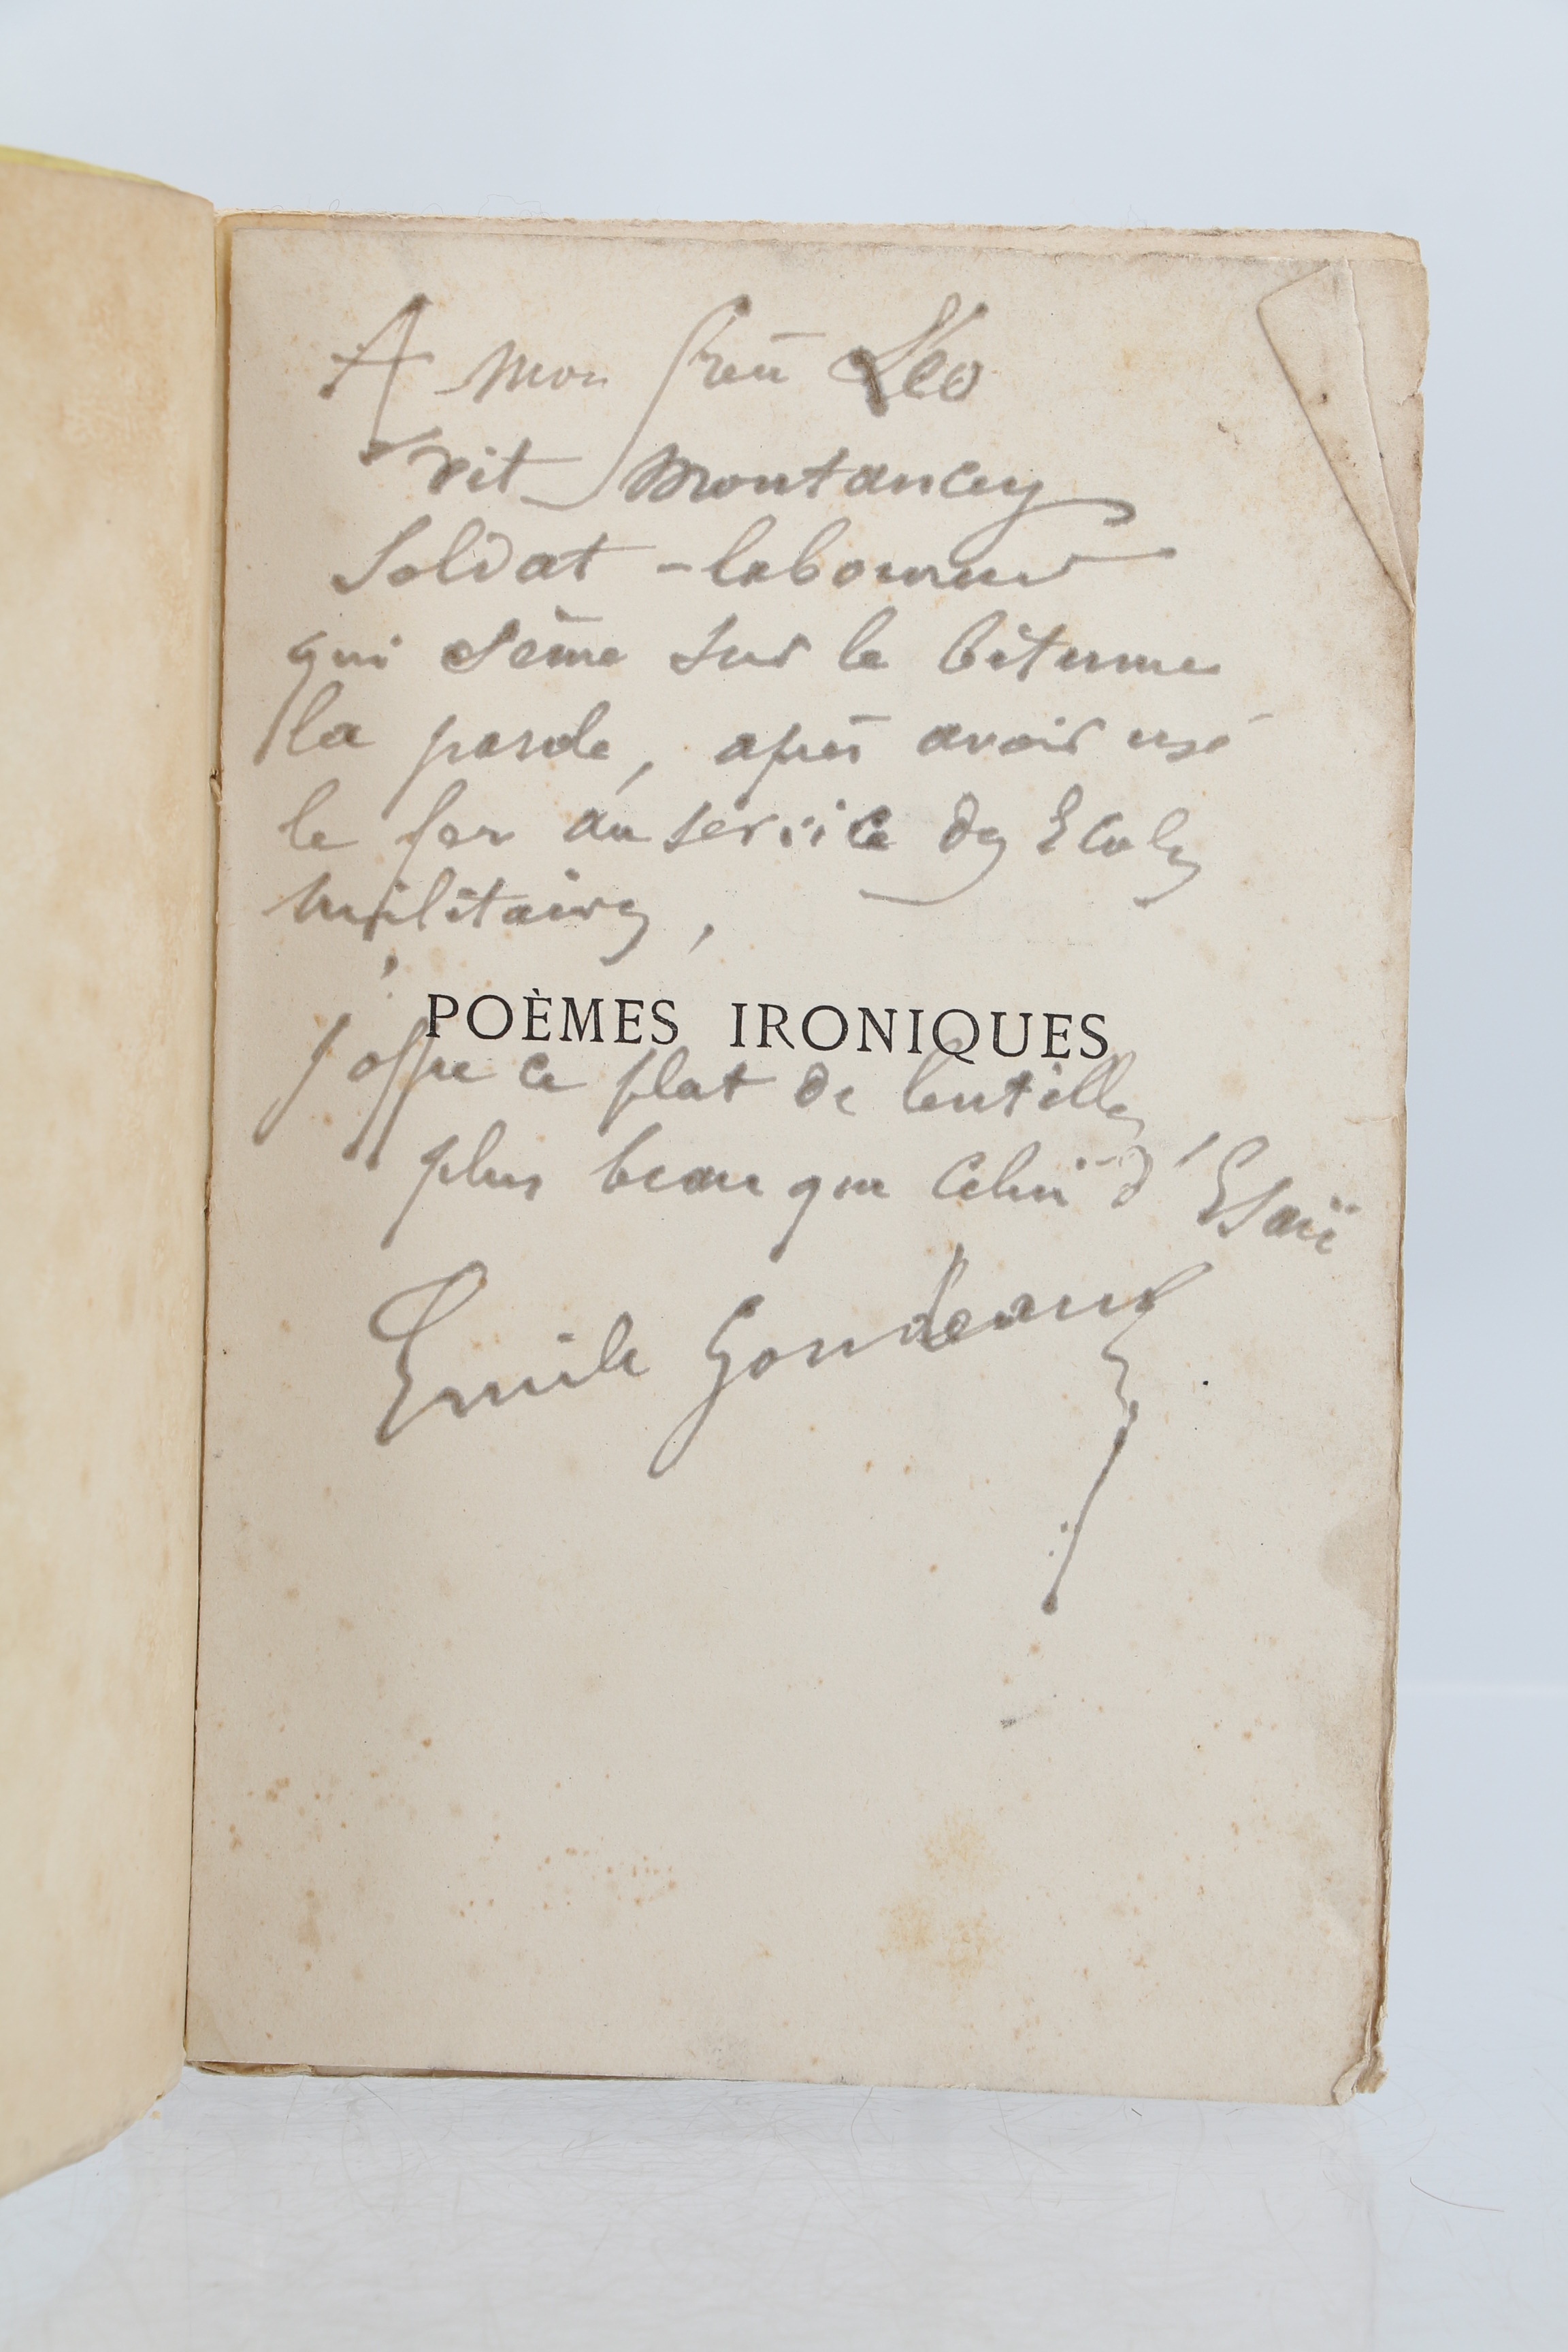 A mon frère Léo
Trézenik Montancey
Soldat-laboureur
qui sème sur le bitume
la parole, après avoir usé
le fer au service des Ecoles
militaires,
POÈMES IRONIQUES
j'offre ce plat de lentilles
plus beau que celui d'Esaü
Emile Goudeau